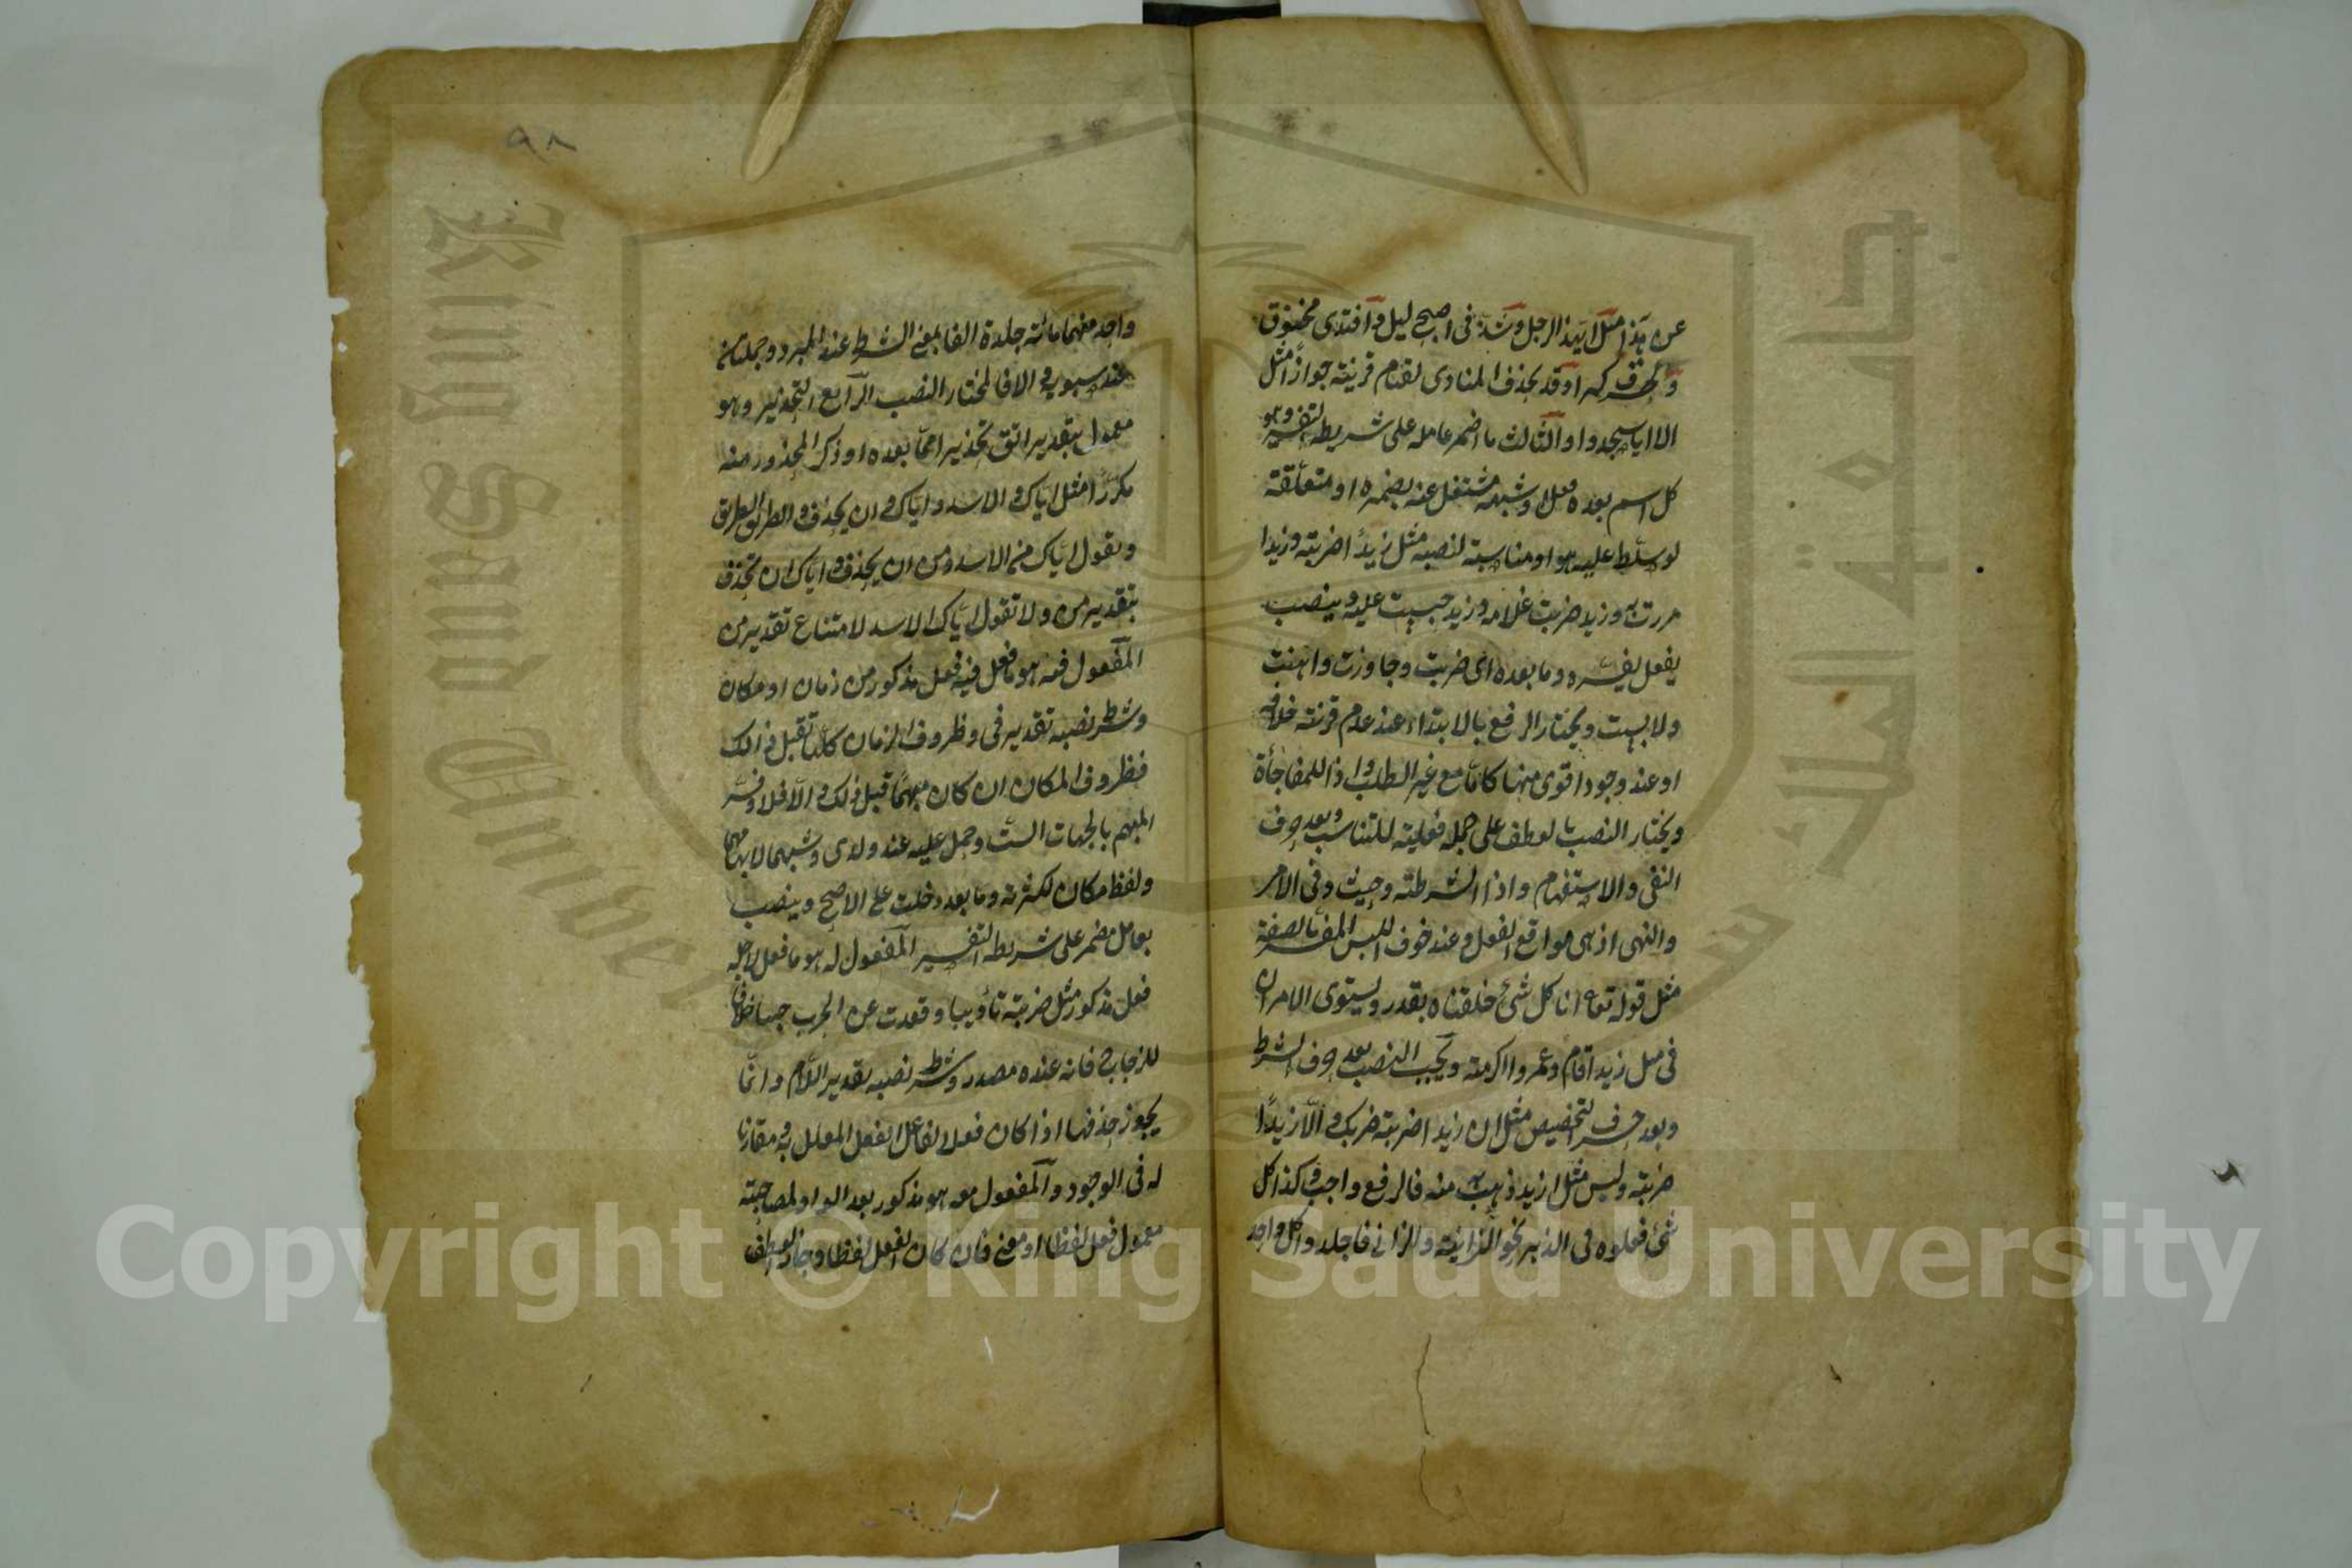 عن هذا مثل ايهذا الرجل وشذ فى اصبح ليل وافتدى مخنوق
واطرق كرا وقد يحذف المنادى لقيام قرينة جوازا مثل
الا يا اسجدوا والثالث ما اضمر عامله على شريطة التفسير وهو
كل اسم بعده فعل او شبهه مشتغل عنه بضميره او متعلقه
لو سلط عليه هو او مناسبه لنصبه مثل زيدا ضربته وزيدا
مررت به وزيدا ضربت غلامه وزيدا حبست عليه وينصب
بفعل يفسره وما بعده اى ضربت وجاوزت واهنت
ولابست ويختار الرفع بالابتداء عند عدم قرينة خلافه
او عند وجود اقوى منها كاما مع غير الطلب واذا للمفاجأة
ويختار النصب بالعطف على جملة فعلية للتناسب وبعد حرف
النفى والاستفهام واذا الشرطية وحيث وفى الامر
والنهى اذ هى مواقع الفعل وعند خوف اللبس المفسر بالصفة
مثل قوله تعا انا كل شئ خلقناه بقدر ويستوى الامران
فى مثل زيد اقام وعمروا اكرمته ويجب النصب بعد حرف الشرط
وبعد حرف التحضيض مثل ان زيدا ضربته ضربك والا زيدا
ضربته وليس مثل ازيد ذهب به منه فالرفع واجب وكذا كل
شئ فعلوه فى الزبر نحو الزانية والزانى فاجلدوا كل واحد
واحد منهما مائة جلدة الفا بمعنى الشرط عند المبرد وجملتان
عند سيبويه والا فالمختار النصب الرابع التحذير وهو
معمول بتقدير اتق تحذيرا مما بعده او ذكر المحذور منه
مكررا مثل اياك والاسد واياك وان يحذف والطريق الطريق
وتقول اياك من الاسد ومن ان يحذف واياك ان تحذف
بتقدير من ولا تقول اياك الاسد لامتناع تقدير من
المفعول فيه هو ما فعل فيه فعل مذكور من زمان او مكان
وشرط نصبه تقدير فى وظروف الزمان كلها تقبل ذالك
فظروف المكان ان كان مبهما قبل ذلك والا فلا وفسر
المبهم بالجهات الست وحمل عليه عند ولدى وشبههما لابهامهما
ولفظ مكان لكثرته وما بعد دخلت على الاصح وينصب
بعامل مضمر على شريطة التفسير المفعول له هو ما فعل لاجله
فعل مذكور مثل ضربته تأديبا وقعدت عن الحرب جبنا خلافا
للزجاج فانه عنده مصدر وشرط نصبه تقدير اللام وانما
يجوز حذفها اذا كان فعلا لفاعل الفعل المعلل به ومقارنا
له فى الوجود والمفعول معه هو مذكور بعد الواو لمصاحبته
معمول فعل لفظا او معنى فان كان الفعل لفظا وجاز العطف
٩٨
Copyright © King Saud University
King Saud University
جامعة الملك سعود